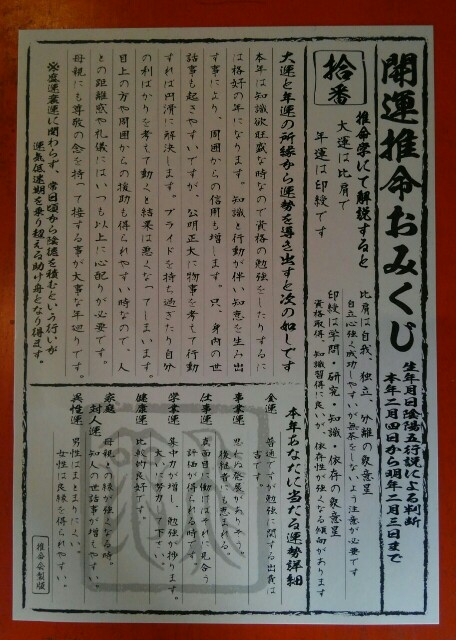 開運推命おみくじ
生年月日陰陽五行説による判断
本年二月四日から明年二月三日まで
拾番
推命学にて解説すると
大運は比肩で
年運は印綬です
比肩は自我、独立、分離の象意星
自立心強く成功しやすいが無茶をしないよう注意が必要です
印綬は学問・研究・知識・依存の象意星
資格取得、知識習得に良いが、依存性が強くなる傾向があります
大運と年運の所縁から運勢を導き出すと次の如しです
本年は知識欲旺盛な時なので資格の勉強をしたりするに
は格好の年になります。知識と行動が伴い知恵を生み出
す事により、周囲からの信用も増します。只、身内の世
話事も起きやすいですが、公明正大に物事を考えて行動
すれば円滑に解決します。プライドを持ち過ぎたり自分
の利ばかりを考えて動くと結果は悪くなってしまいます。
目上の方や周囲からの援助も得られやすい時なので、人
との距離感や礼儀にはいつも以上に心配りが必要です。
母親にも尊敬の念を持って接する事が大事な年廻りです。
※盛運衰運に関わらず、常日頃から陰徳を積むという行いが
運気低迷期を乗り超える助け舟となり得ます。
本年あなたに当たる運勢詳細
金運 普通ですが勉強に関する出費は
吉です。
事業運 思わぬ発展がありそう。
後継者に恵まれる。
仕事運 真面目に働けばそれに見合う
評価が得られる時です。
学業運 集中力が増し、勉強が捗ります。
大いに努力して下さい。
健康運 比較的良好です。
家庭 母親との縁が強くなる時。
対人運 知人の世話事が増えやすい。
異性運 男性はまとまりにくい。
女性は良縁を得られやすい。
推命会製版